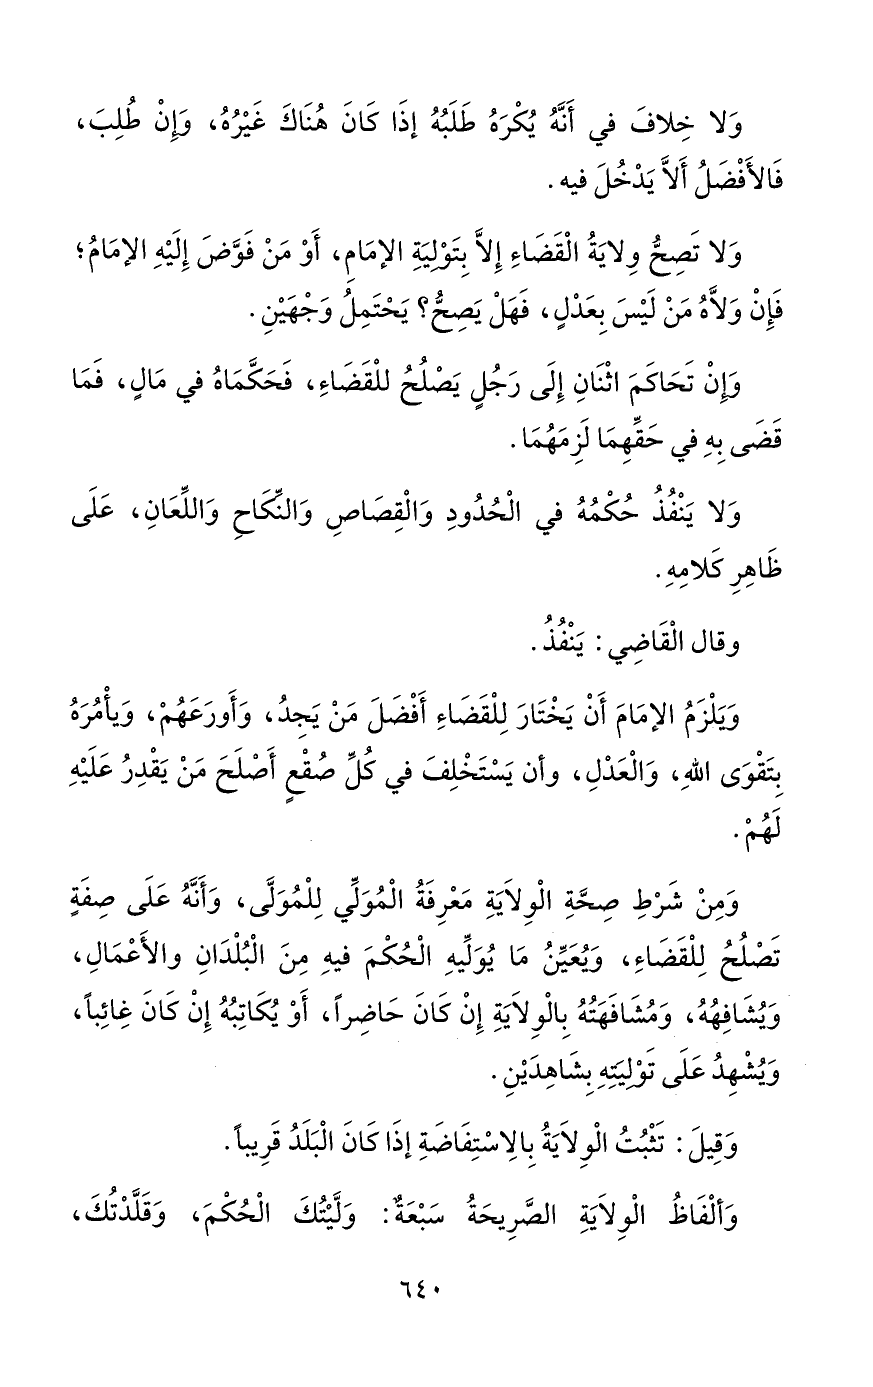 وَلا خِلافَ في أَنَّهُ يُكْرَهُ طَلَبُهُ إذَا كَانَ هُنَاكَ غَيْرُهُ، وَإِنْ طُلِبَ،
فَالأَفْضَلُ أَلاَّ يَدْخُلَ فيه.
وَلا تَصِحُّ وِلايَةُ الْقَضَاءِ إلاَّ بِتَوْلِيَةِ الإمَامِ، أَوْ مَنْ فَوَّضَ إلَيْهِ الإمَامُ؛
فَإِنْ وَلاَّهُ مَنْ لَيْسَ بِعَدْلٍ، فَهَلْ يَصِحُّ؟ يَحْتَمِلُ وَجْهَيْنِ.
وَإِنْ تَحَاكَمَ اثْنَانِ إلَى رَجُلٍ يَصْلُحُ للْقَضَاءِ، فَحَكَّمَاهُ في مَالٍ، فَمَا
قَضَى بِهِ في حَقِّهِمَا لَزِمَهُمَا.
وَلا يَنْفُذُ حُكْمُهُ في الْحُدُودِ وَالْقِصَاصِ وَالنِّكَاحِ وَاللِّعَانِ، عَلَى
ظَاهِرِ كَلامِهِ.
وقال الْقَاضِي: يَنْفُذُ.
وَيَلْزَمُ الإمَامَ أَنْ يَخْتَارَ لِلْقَضَاءِ أَفْضَلَ مَنْ يَجِدُ، وَأَورَعَهُمْ، وَيأْمُرَهُ
بِتَقْوَى اللهِ، وَالْعَدْلِ، وأن يَسْتَخْلِفَ في كُلِّ صُقْعٍ أَصْلَحَ مَنْ يَقْدِرُ عَلَيْهِ
لَهُمْ.
وَمِنْ شَرْطِ صِحَّةِ الْوِلاَيَةِ مَعْرِفَةُ الْمُوَلِّي لِلْمُوَلَّى، وَأَنَّهُ عَلَى صِفَةٍ
تَصْلُحُ لِلْقَضَاءِ، وَيُعَيِّنُ مَا يُوَلِّيهِ الْحُكْمَ فيهِ مِنَ الْبُلْدَانِ والأَعْمَالِ،
وَيُشَافِهُهُ، وَمُشَافَهَتُهُ بِالْوِلاَيَةِ إنْ كَانَ حَاضِراً، أَوْ يُكَاتِبُهُ إنْ كَانَ غائِباً،
وَيُشْهِدُ عَلَى تَوْلِيَتِهِ بِشَاهِدَيْنِ.
وَقِيلَ: تَثْبُتُ الْوِلاَيَةُ بِالاِسْتِفَاضَةِ إذَا كَانَ الْبَلَدُ قَرِيباً.
وَأَلْفَاظُ الْوِلاَيَةِ الصَّرِيحَةُ سَبْعَةٌ: وَلَّيْتُكَ الْحُكْمَ، وَقَلَّدْتُكَ،
٦٤٠